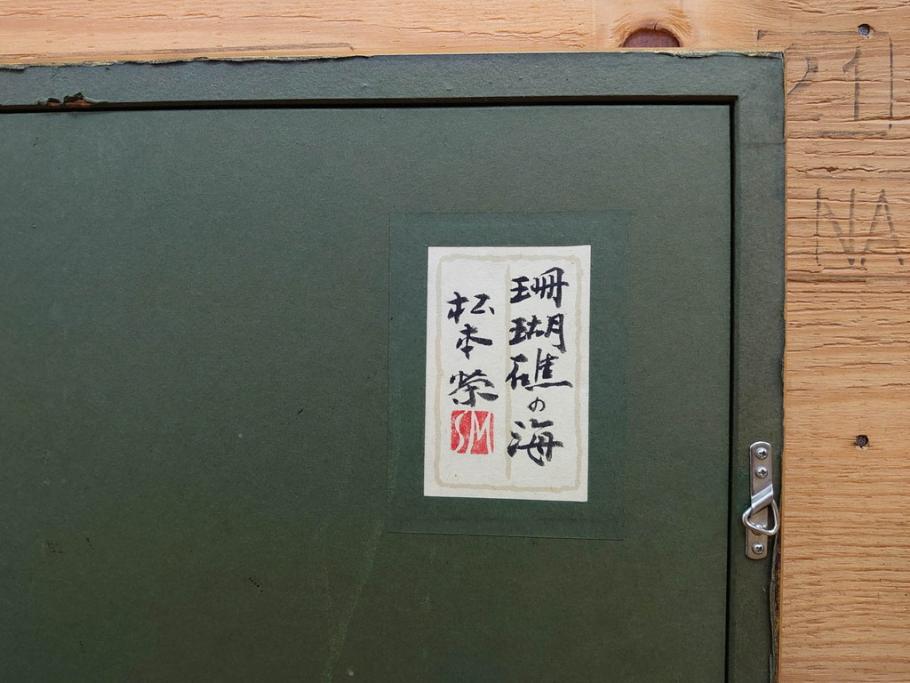 珊瑚礁の海
松本榮
SM
NA